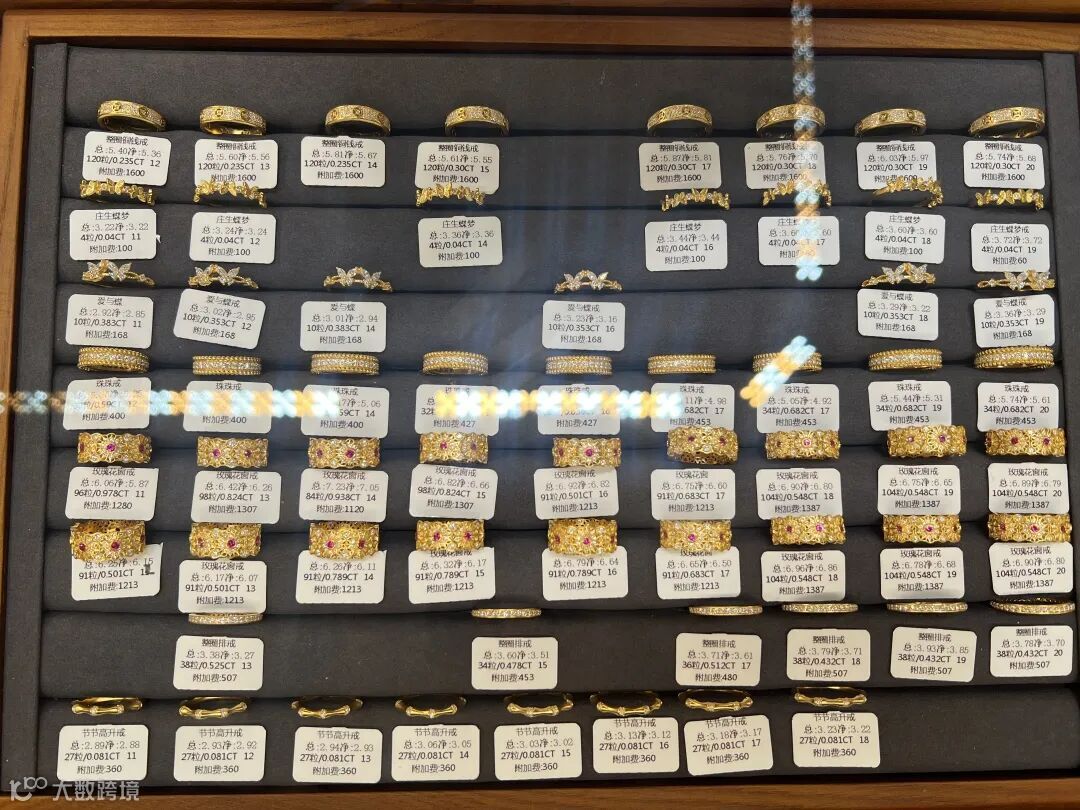 整圈铜钱戒
总:5.40净:5.36
120粒/0.235CT 12
附加费:1600
整圈铜钱戒
总:5.60净:5.56
120粒/0.235CT 13
附加费:1600
总:5.81净:5.67
120粒/0.235CT 14
附加费:1600
整圈铜钱戒
总:5.61净:5.55
120粒/0.30CT 15
附加费:1600
整圈铜钱戒
总:5.87净:5.81
120粒/0.30CT 17
附加费:1600
整圈铜钱戒
总:5.76净:5.70
120粒/0.30CT 18
附加费:1600
整圈铜钱戒
总:6.03净:5.97
120粒/0.30CT 19
整圈铜钱戒
总:5.74净:5.68
120粒/0.30CT 20
附加费:1600
庄生蝶梦
总:3.22净:3.22
4粒/0.04CT 11
附加费:100
庄生蝶梦
总:3.24净:3.24
4粒/0.04CT 12
附加费:100
总:3.36净:3.36
4粒/0.04CT 14
附加费:100
庄生蝶梦
总:3.44净:3.44
4粒/0.04CT 16
附加费:100
庄生蝶梦
4粒/0.04CT 17
附加费:100
庄生蝶梦
总:3.60净:3.60
4粒/0.04CT 18
附加费:100
庄生蝶梦
总:3.72净:3.72
4粒/0.04CT 19
附加费:60
爱与蝶
总:2.92净:2.85
10粒/0.383CT 11
附加费:168
爱与蝶戒
总:3.02净:2.95
10粒/0.353CT 12
附加费:168
爱与蝶
总:3.01净:2.94
10粒/0.383CT 14
附加费:168
爱与蝶戒
总:3.23净:3.16
10粒/0.353CT 16
附加费:168
爱与蝶戒
总:3.29净:3.22
10粒/0.353CT 18
附加费:168
爱与蝶戒
总:3.36净:3.29
10粒/0.353CT 19
附加费:168
珠珠戒
附加费:400
珠珠戒
附加费:400
珠珠戒
净:5.06
14
附加费:400
附加费:427
附加费:427
珠珠戒
净:4.98
17
附加费:453
珠珠戒
总:5.05净:4.92
34粒/0.682CT 17
附加费:453
珠珠戒
总:5.44净:5.31
34粒/0.682CT 19
附加费:453
珠珠戒
总:5.74净:5.61
34粒/0.682CT 20
附加费:453
玫瑰花窗戒
总:6.06净:5.87
96粒/0.978CT 11
附加费:1280
玫瑰花窗戒
总:6.42净:6.26
98粒/0.824CT 13
附加费:1307
玫瑰花窗戒
总:7.23净:7.05
84粒/0.938CT 14
附加费:1120
玫瑰花窗戒
总:6.82净:6.66
98粒/0.824CT 15
附加费:1307
玫瑰花窗戒
总:6.92净:6.82
91粒/0.501CT 16
附加费:1213
玫瑰花窗
总:6.75净:6.60
91粒/0.683CT 17
附加费:1213
玫瑰花窗戒
总:6.90净:6.80
104粒/0.548CT 18
附加费:1387
玫瑰花窗戒
总:6.75净:6.65
104粒/0.548CT 19
附加费:1387
玫瑰花窗戒
总:6.89净:6.79
104粒/0.548CT 20
附加费:1387
总:6.25净:6.15
91粒/0.501CT
附加费:1213
玫瑰花窗戒
总:6.17净:6.07
91粒/0.501CT 13
附加费:1213
总:6.26净:6.11
91粒/0.789CT 14
附加费:1213
玫瑰花窗戒
总:6.32净:6.17
91粒/0.789CT 15
附加费:1213
总:6.79净:6.64
91粒/0.789CT 16
附加费:1213
玫瑰花窗戒
总:6.65净:6.50
91粒/0.683CT 17
附加费:1213
玫瑰花窗戒
总:6.96净:6.86
104粒/0.548CT 18
附加费:1387
玫瑰花窗戒
总:6.78净:6.68
104粒/0.548CT 19
附加费:1387
玫瑰花窗戒
总:6.90净:6.80
104粒/0.548CT 20
附加费:1387
整圈排戒
总:3.38净:3.27
38粒/0.525CT 13
附加费:507
整圈排戒
总:3.60净:3.51
34粒/0.478CT 15
附加费:453
整圈排戒
总:3.71净:3.61
36粒/0.512CT 17
附加费:480
整圈排戒
总:3.79净:3.71
38粒/0.432CT 18
附加费:507
整圈排戒
总:3.93净:3.85
38粒/0.432CT 19
附加费:507
整圈排戒
总:3.78净:3.70
38粒/0.432CT 20
附加费:507
节节高升戒
总:2.89净:2.88
27粒/0.081CT 11
附加费:360
节节高升戒
总:2.93净:2.92
27粒/0.081CT 12
附加费:360
节节高升戒
总:2.94净:2.93
27粒/0.081CT 13
附加费:360
节节高升戒
总:3.06净:3.05
27粒/0.081CT 14
附加费:360
节节高升戒
总:3.03净:3.02
27粒/0.081CT 15
附加费:360
节节高升戒
总:3.13净:3.12
27粒/0.081CT 16
附加费:360
节节高升戒
总:3.18净:3.17
27粒/0.081CT 17
附加费:360
节节高升戒
总:3.23净:3.22
27粒/0.081CT 18
附加费:360
大数跨境